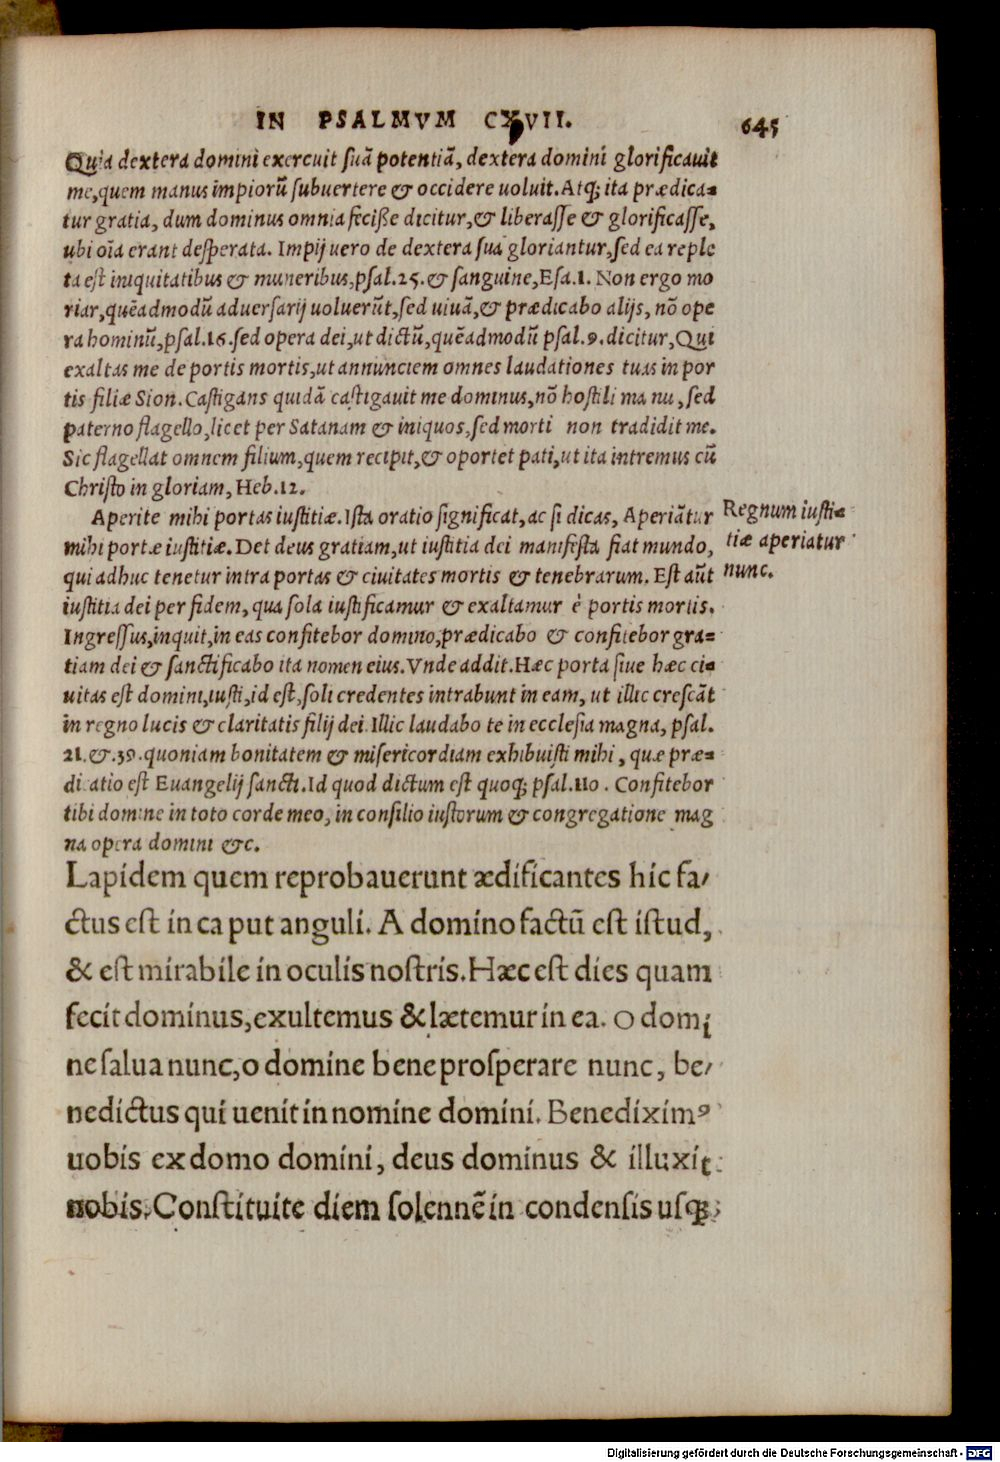 IN PSALMVM CXVII. 645
Quia dextera domini exercuit suā potentiā, dextera domini glorificauit
me, quem manus impiorū subuertere & occidere uoluit. Atq; ita prædica=
tur gratia, dum dominus omnia feciße dicitur, & liberasse & glorificasse,
ubi oīa erant desperata. Impij uero de dextera sua gloriantur, sed ea reple
ta est iniquitatibus & muneribus, psal.25. & sanguine, Esa.1. Non ergo mo
riar, quēadmodū aduersarij uoluerūt, sed uiuā, & prædicabo alijs, nō ope
ra hominū, psal.16. sed opera dei, ut dictū, quēadmodū psal.9. dicitur, Qui
exaltas me de portis mortis, ut annunciem omnes laudationes tuas in por
tis filiæ Sion. Castigans quidā castigauit me dominus, nō hostili ma nu, sed
paterno flagello, licet per Satanam & iniquos, sed morti non tradidit me.
Sic flagellat omnem filium, quem recipit, & oportet pati, ut ita intremus cū
Christo in gloriam, Heb.12.
Aperite mihi portas iustitiæ. Ista oratio significat, ac si dicas, Aperiātur
mihi portæ iustitiæ. Det deus gratiam, ut iustitia dei manifesta fiat mundo,
qui adhuc tenetur intra portas & ciuitates mortis & tenebrarum. Est aūt
iustitia dei per fidem, qua sola iustificamur & exaltamur è portis mortis.
Ingressus, inquit, in eas confitebor domino, prædicabo & confitebor gra=
tiam dei & sanctificabo ita nomen eius. Vnde addit. Hæc porta siue hæc ci=
uitas est domini, iusti, id est, soli credentes intrabunt in eam, ut illic crescāt
in regno lucis & claritatis filij dei. Illic laudabo te in ecclesia magna, psal.
21. &. 39. quoniam bonitatem & misericordiam exhibuisti mihi, quæ præ=
dicatio est Euangelij sancti. Id quod dictum est quoq; psal.110. Confitebor
tibi domine in toto corde meo, in consilio iustorum & congregatione mag
na opera domini &c.
Regnum iusti=
tiæ aperiatur
nunc.
Lapidem quem reprobauerunt ædificantes hic fa/
ctus est in ca put anguli. A domino factū est istud,
& est mirabile in oculis nostris. Hæc est dies quam
fecit dominus, exultemus & lætemur in ea. O domi
ne salua nunc, o domine bene prosperare nunc, be/
nedictus qui uenit in nomine domini. Benediximꝰ
uobis ex domo domini, deus dominus & illuxit
nobis. Constituite diem solennē in condensis usq;
Digitalisierung gefördert durch die Deutsche Forschungsgemeinschaft - DFG